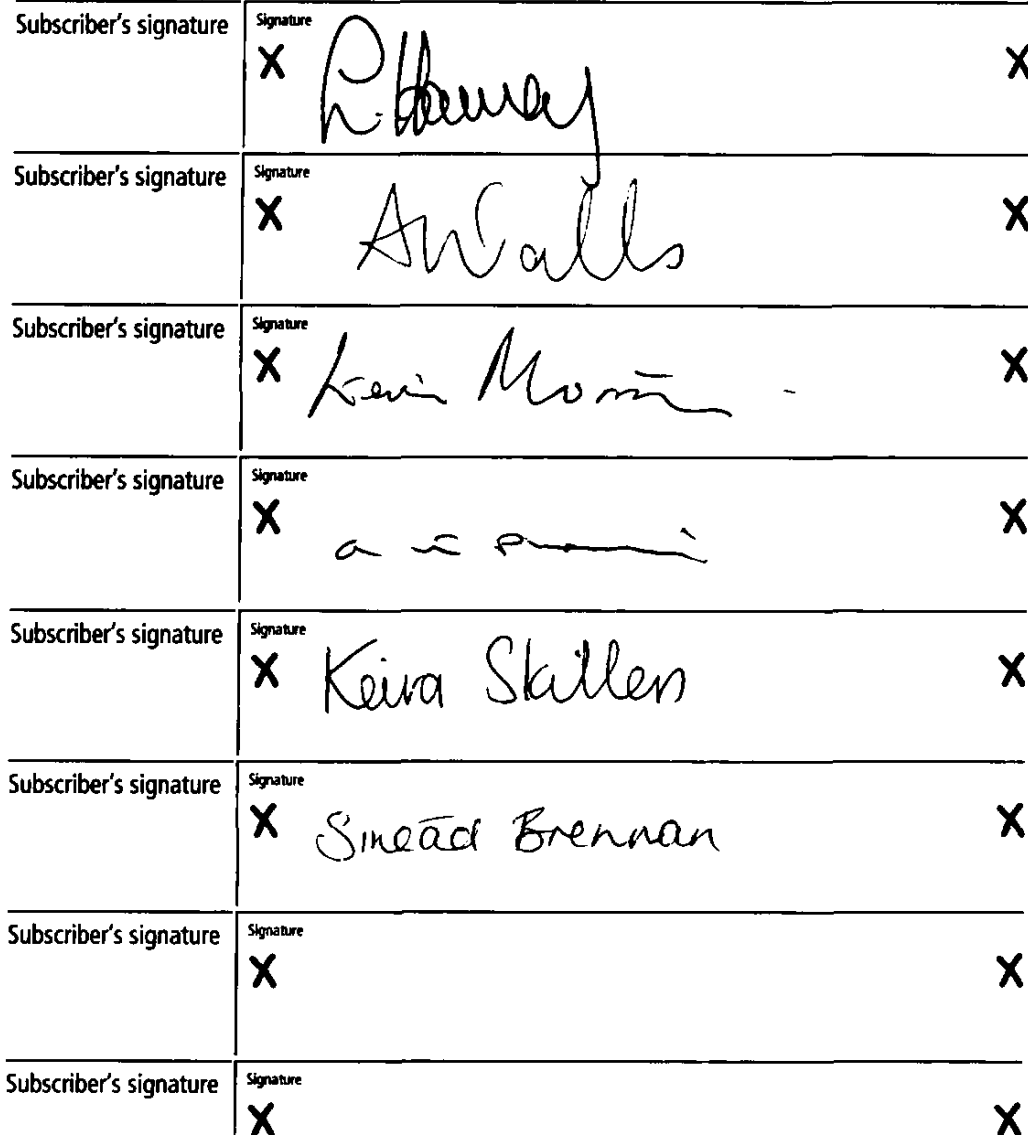 Subscriber's signature
Signature
X X
Subscriber's signature
Signature
X A Walls X
Subscriber's signature
Signature
X Kevin X
Subscriber's signature
Signature
X X
Subscriber's signature
Signature
X Keira Skillen X
Subscriber's signature
Signature
X Sineād Brennan X
Subscriber's signature
Signature
X X
Subscriber's signature
Signature
X X